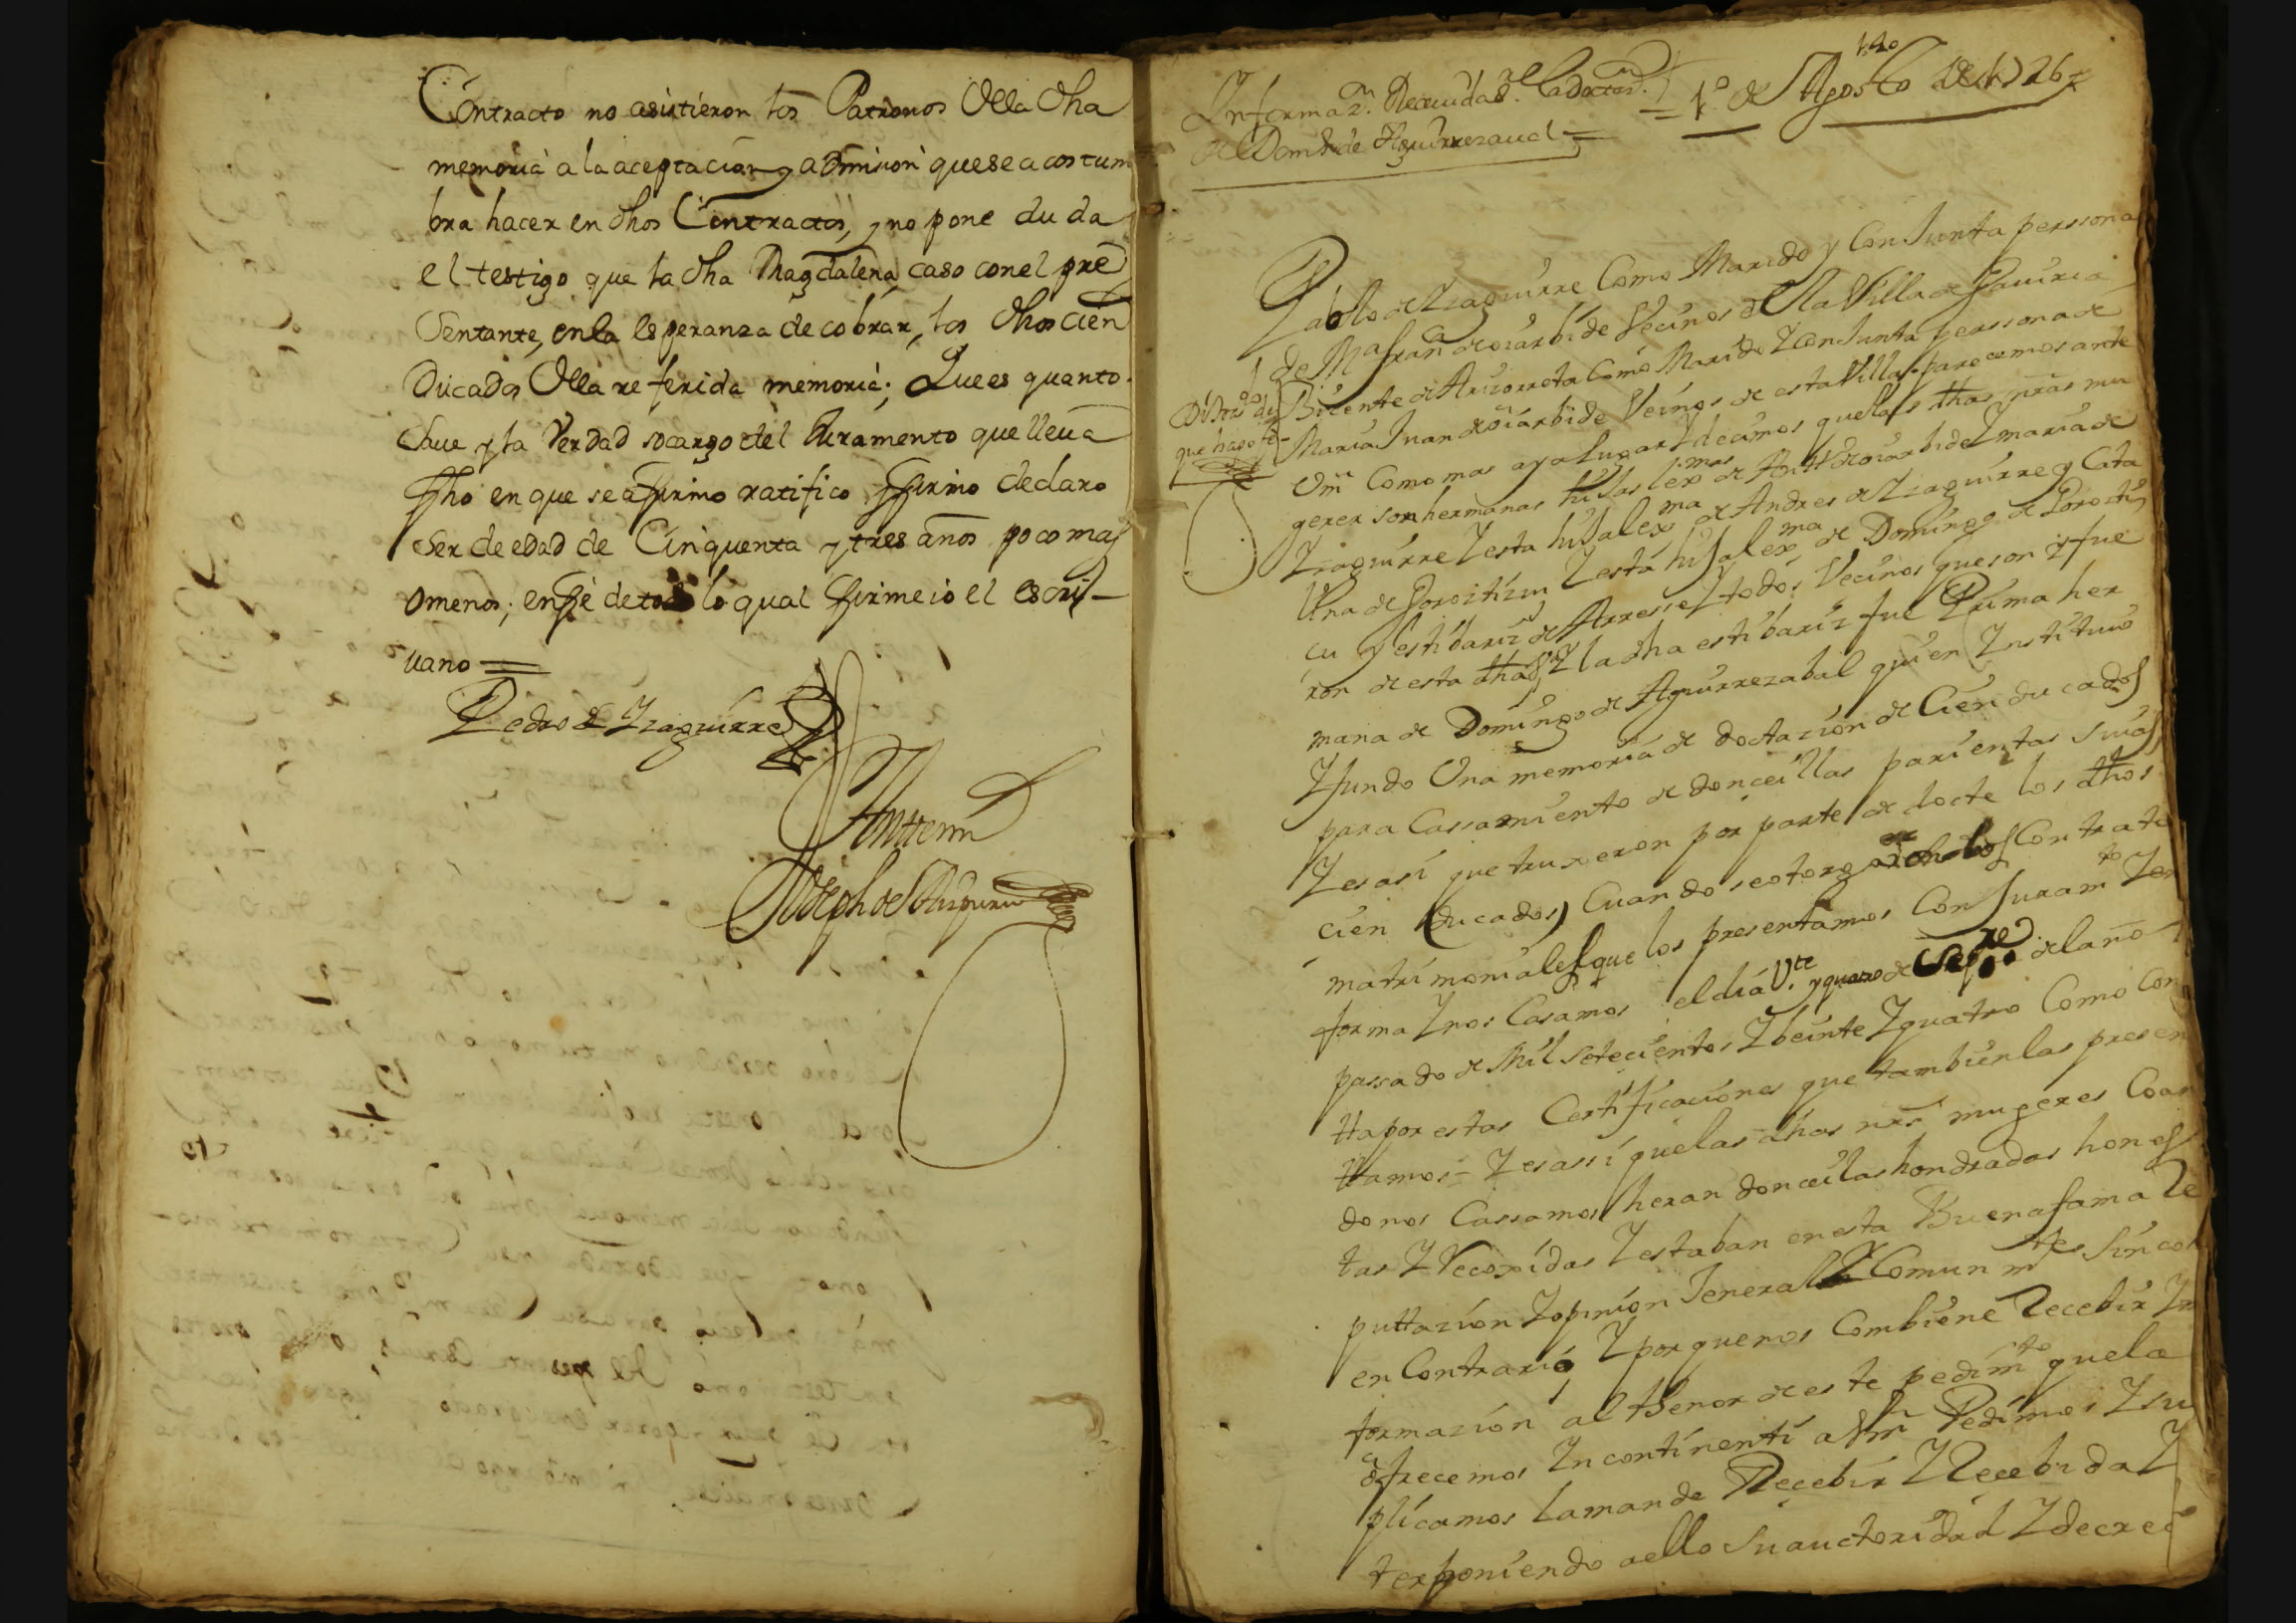 Contracto no asistieron los Patronos della dha
memoria a la aceptacion y admision que se a costum
bra hacer en dhos Contractos, y no pone du da
el testigo que la dha Magdalena, caso con el pre
sentante, en la esperanza de cobrar, los dhos cien
Ducados della re ferida memoria; Que es quanto
save y la Verdad socargo del Juramento que lleua
fho en que se afirmo ratifico y firmo declaro
ser de edad de Cinquenta y tres años poco mas
omenos; en fe de todo lo qual firme io el escri-
uano =
Pedro de Yzaguirre
Ante mi
Joseph de Aizpuru
Informaz.n Reciuida
de Dom.o de Aguirrezaual =
= 1.º de Agosto de 1726 =
Pablo de Yzaguirre Como Marido y Conjunta perssona
de Ma fran.ca de oiarbide Vecinos de la Villa de Gauiria
Bicente de Arizorreta Como Marido Y Conjunta perssona de
Maria Juan de oiarbide Vecinos de esta Villa parecemos ante
Vm Como mas aya lugar Y decimos que las dhas nras mu
geres son hermanas hijas lex.mas de Antt.o de oiarbide Y maria de
Yzaguirre Y esta hija lex.ma de Andres de Yzaguirre y Cata
lina de Goroitizu Y esta hija lex.ma de Domingo de Goroiti
cu y estibariz de Arresse Y todos Vecinos que son y fue
ron de esta dha V.a Y la dha estibariz fue Prima her
mana de Domingo de Aguirrezabal quien Instituio
Y fundo Una memoria de dotazion de Cien ducados
para Cassamiento de doncellas parientas suias
Y es asi que truxeron por parte de docte los dhos
cien ducados Cuando se otorgaron los Contratos
matrimoniales que los presentamos Con Juram.to Y en
forma Y nos Casamos el dia V.te y quatro de Sep.re del año
passado de Mil Setecientos Y beinte Y quatro Como Cons
tta por estas Certificaciones que tambien las presen
ttamos = Y es assi que las dhas nras mugeres Coan
do nos Cassamos heran doncellas hondradas hones
tas Y Recoxidas Y estaban en esta Buena fama Re
puttazion Y opinion Jeneral Y Comun m.te sin cos
en Contrario Y porque nos Combiene Recebir In
formazion al thenor de este pedim.to que la
ofrecemos Incontinenti a Vm Pedimos Y su
plicamos La mande Recebir Y Recebida Y
terponiendo a ello Su auctoridad Y decre